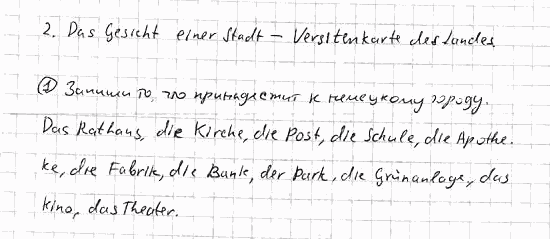 2. Das Gesicht einer Stadt – Versitenkarte des Landes.
① Запиши то, что принадлежит к немецкому городу.
Das Rathaus, die Kirche, die Post, die Schule, die Apothe-
ke, die Fabrik, die Bank, der Park, die Grünanlage, das
Kino, das Theater.